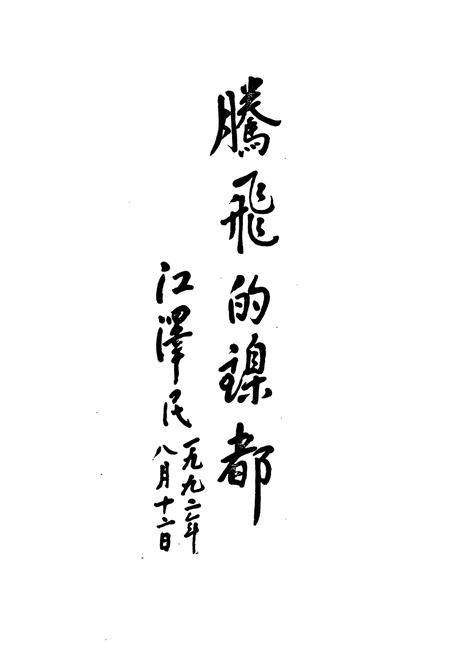 騰飛的鎳都
江澤民
一九九二年
八月十二日